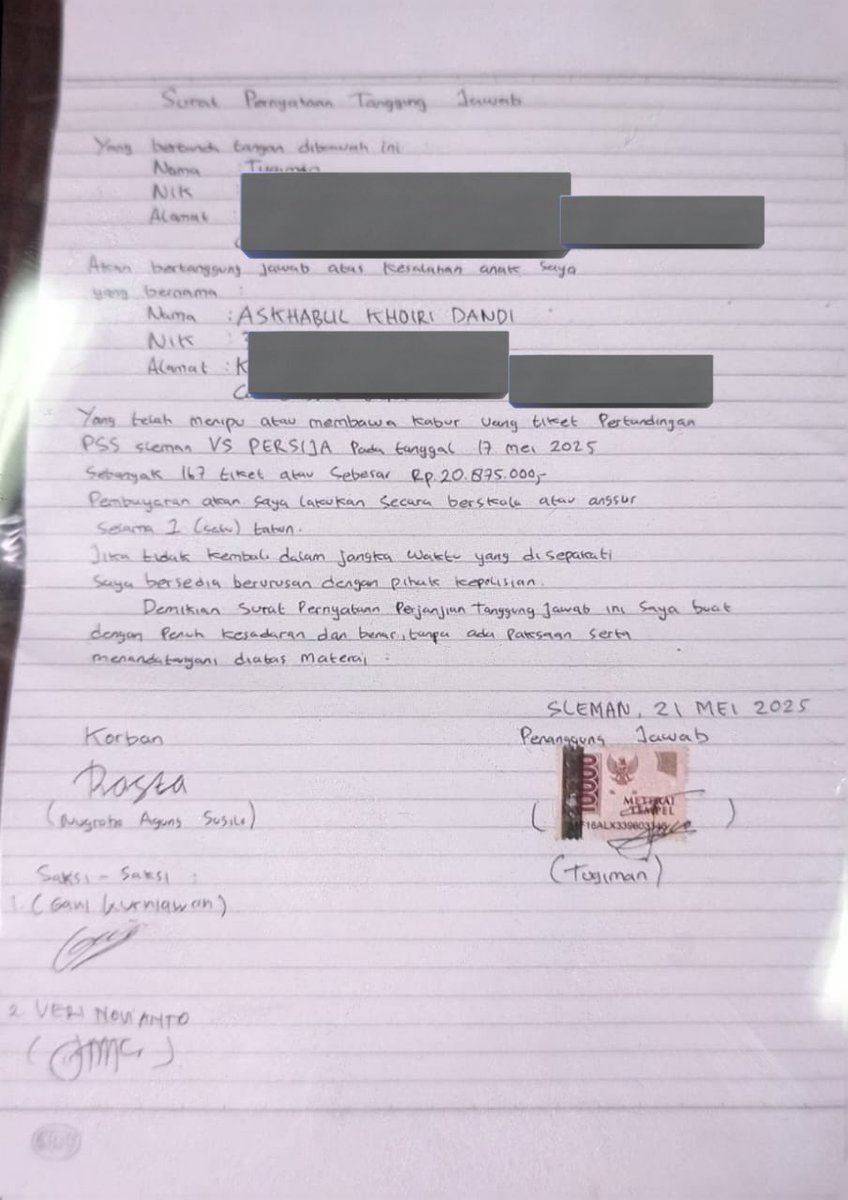 Surat Pernyataan Tanggung Jawab
Yang bertanda tangan dibawah ini
Nama : Tugiman
NIK :
Alamat
Akan bertanggung jawab atas kesalahan anak saya
yang bernama :
Nama : ASKHABUL KHOIRI DANDI
NIK :
Alamat : K
Yang telah menipu atau membawa kabur uang tiket Pertandingan
PSS Sleman VS PERSIJA Pada tanggal 17 mei 2025
Sebanyak 167 tiket atau Sebesar Rp.20.875.000,-
Pembayaran akan saya lakukan Secara berskala atau angsur
selama 1 (satu) tahun.
Jika tidak kembali dalam jangka waktu yang disepakati
Saya bersedia berurusan dengan pihak kepolisian.
Demikian Surat Pernyataan Perjanjian Tanggung Jawab ini Saya buat
dengan Penuh kesadaran dan benar, tanpa ada Paksaan serta
menandatangani diatas Materai :
SLEMAN, 21 MEI 2025
Korban
Penanggung Jawab
10000
METERAI
TEMPEL
(Nugroho Agung Susilo)
(Tugiman)
Saksi - Saksi :
1. (Gani kurniawan)
2. VERI NOVIANTO